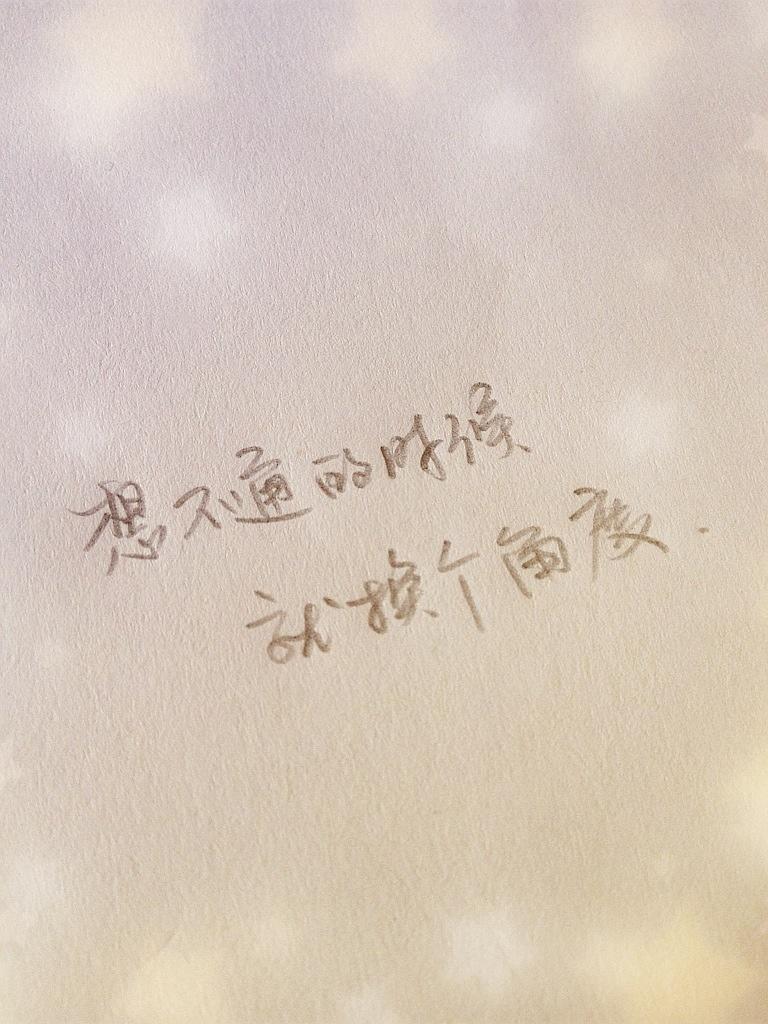 想不通的时候
就换个角度.